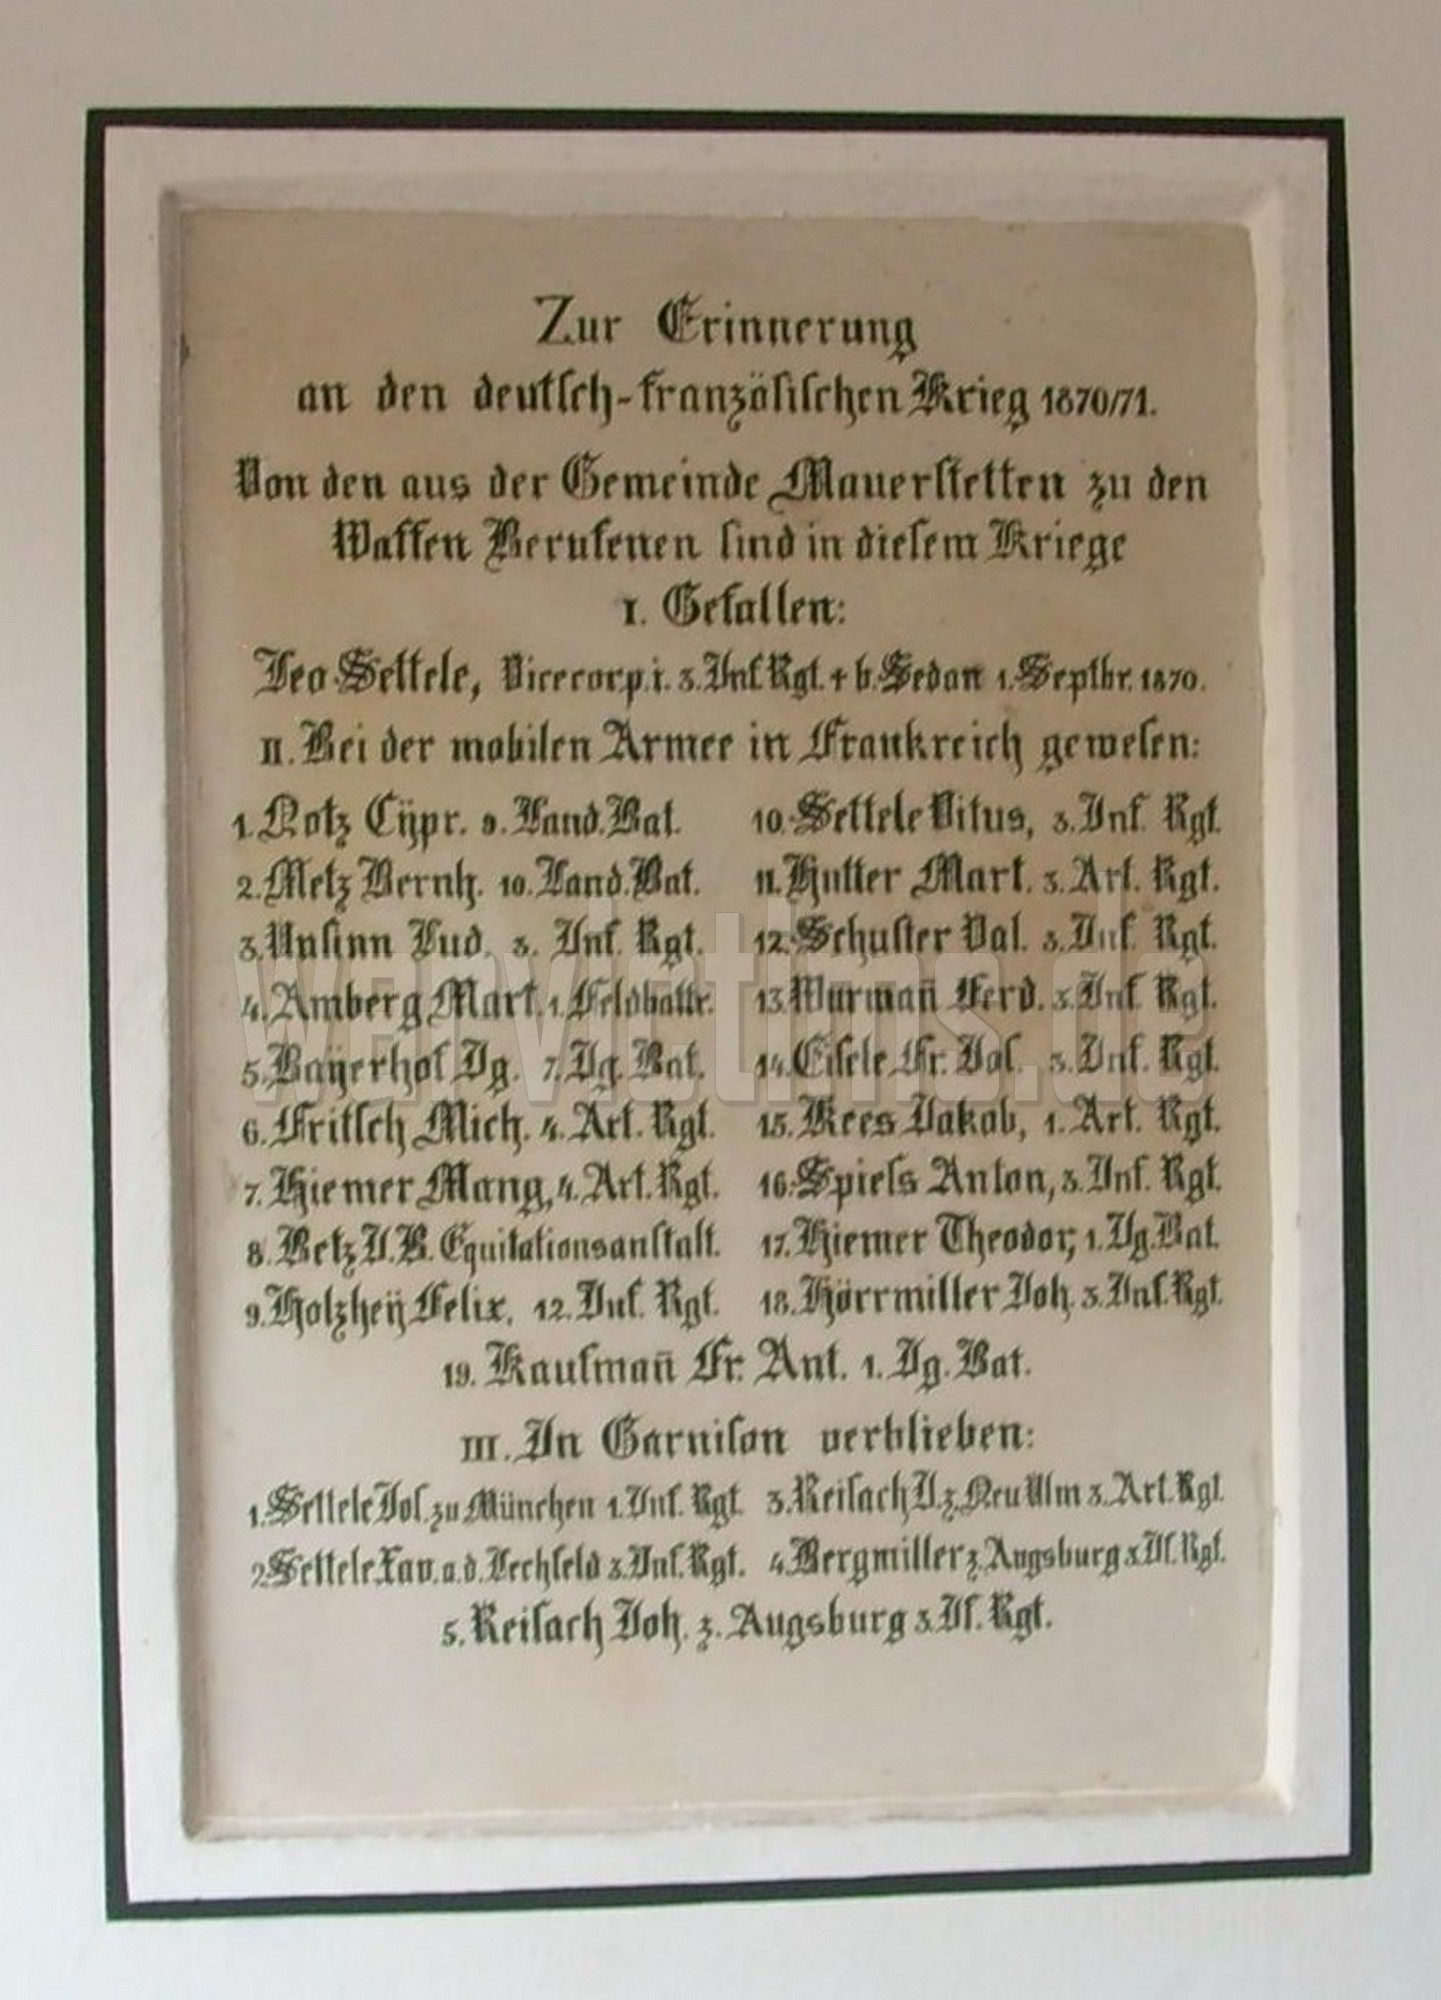 Zur Erinnerung
an den deutsch-französischen Krieg 1870/71.
Von den aus der Gemeinde Mauerstetten zu den
Waffen Berufenen sind in diesem Kriege
I. Gefallen:
Leo Settele, Vicecorp. i. 3. Inf. Rgt. + b. Sedan 1. Septbr. 1870.
II. Bei der mobilen Armee in Frankreich gewesen:
1. Notz Cÿpr. 9. Land. Bat.
2. Metz Bernh. 10. Land. Bat.
3. Unsinn Lud. 3. Inf. Rgt.
4. Amberg Mart. 1. Feldbattr.
5. Baÿerhof Ig. 7. Jg. Bat.
6. Fritsch Mich. 4. Art. Rgt.
7. Hiemer Mang, 4. Art. Rgt.
8. Betz J. B. Equitationsanstalt.
9. Holzheÿ Felix, 12. Inf. Rgt.
10. Settele Vitus, 3. Inf. Rgt.
11. Hutter Mart. 3. Art. Rgt.
12. Schuster Val. 3. Inf. Rgt.
13. Wurman̄ Ferd. 3. Inf. Rgt.
14. Eisele Fr. Jos. 3. Inf. Rgt.
15. Kees Jakob, 1. Art. Rgt.
16. Spiess Anton, 3. Inf. Rgt.
17. Hiemer Theodor, 1. Jg. Bat.
18. Hörrmiller Joh. 3. Inf. Rgt.
19. Kaufman̄ Fr. Ant. 1. Jg. Bat.
III. In Garnison verblieben:
1. Settele Jos. zu München 1. Inf. Rgt.
2. Settele Xav. a. d. Lechfeld 3. Inf. Rgt.
3. Reisach J. z. Neu Ulm 3. Art. Rgt.
4. Bergmiller z. Augsburg 3. If. Rgt.
5. Reisach Joh. z. Augsburg 3. If. Rgt.
warvictims.de